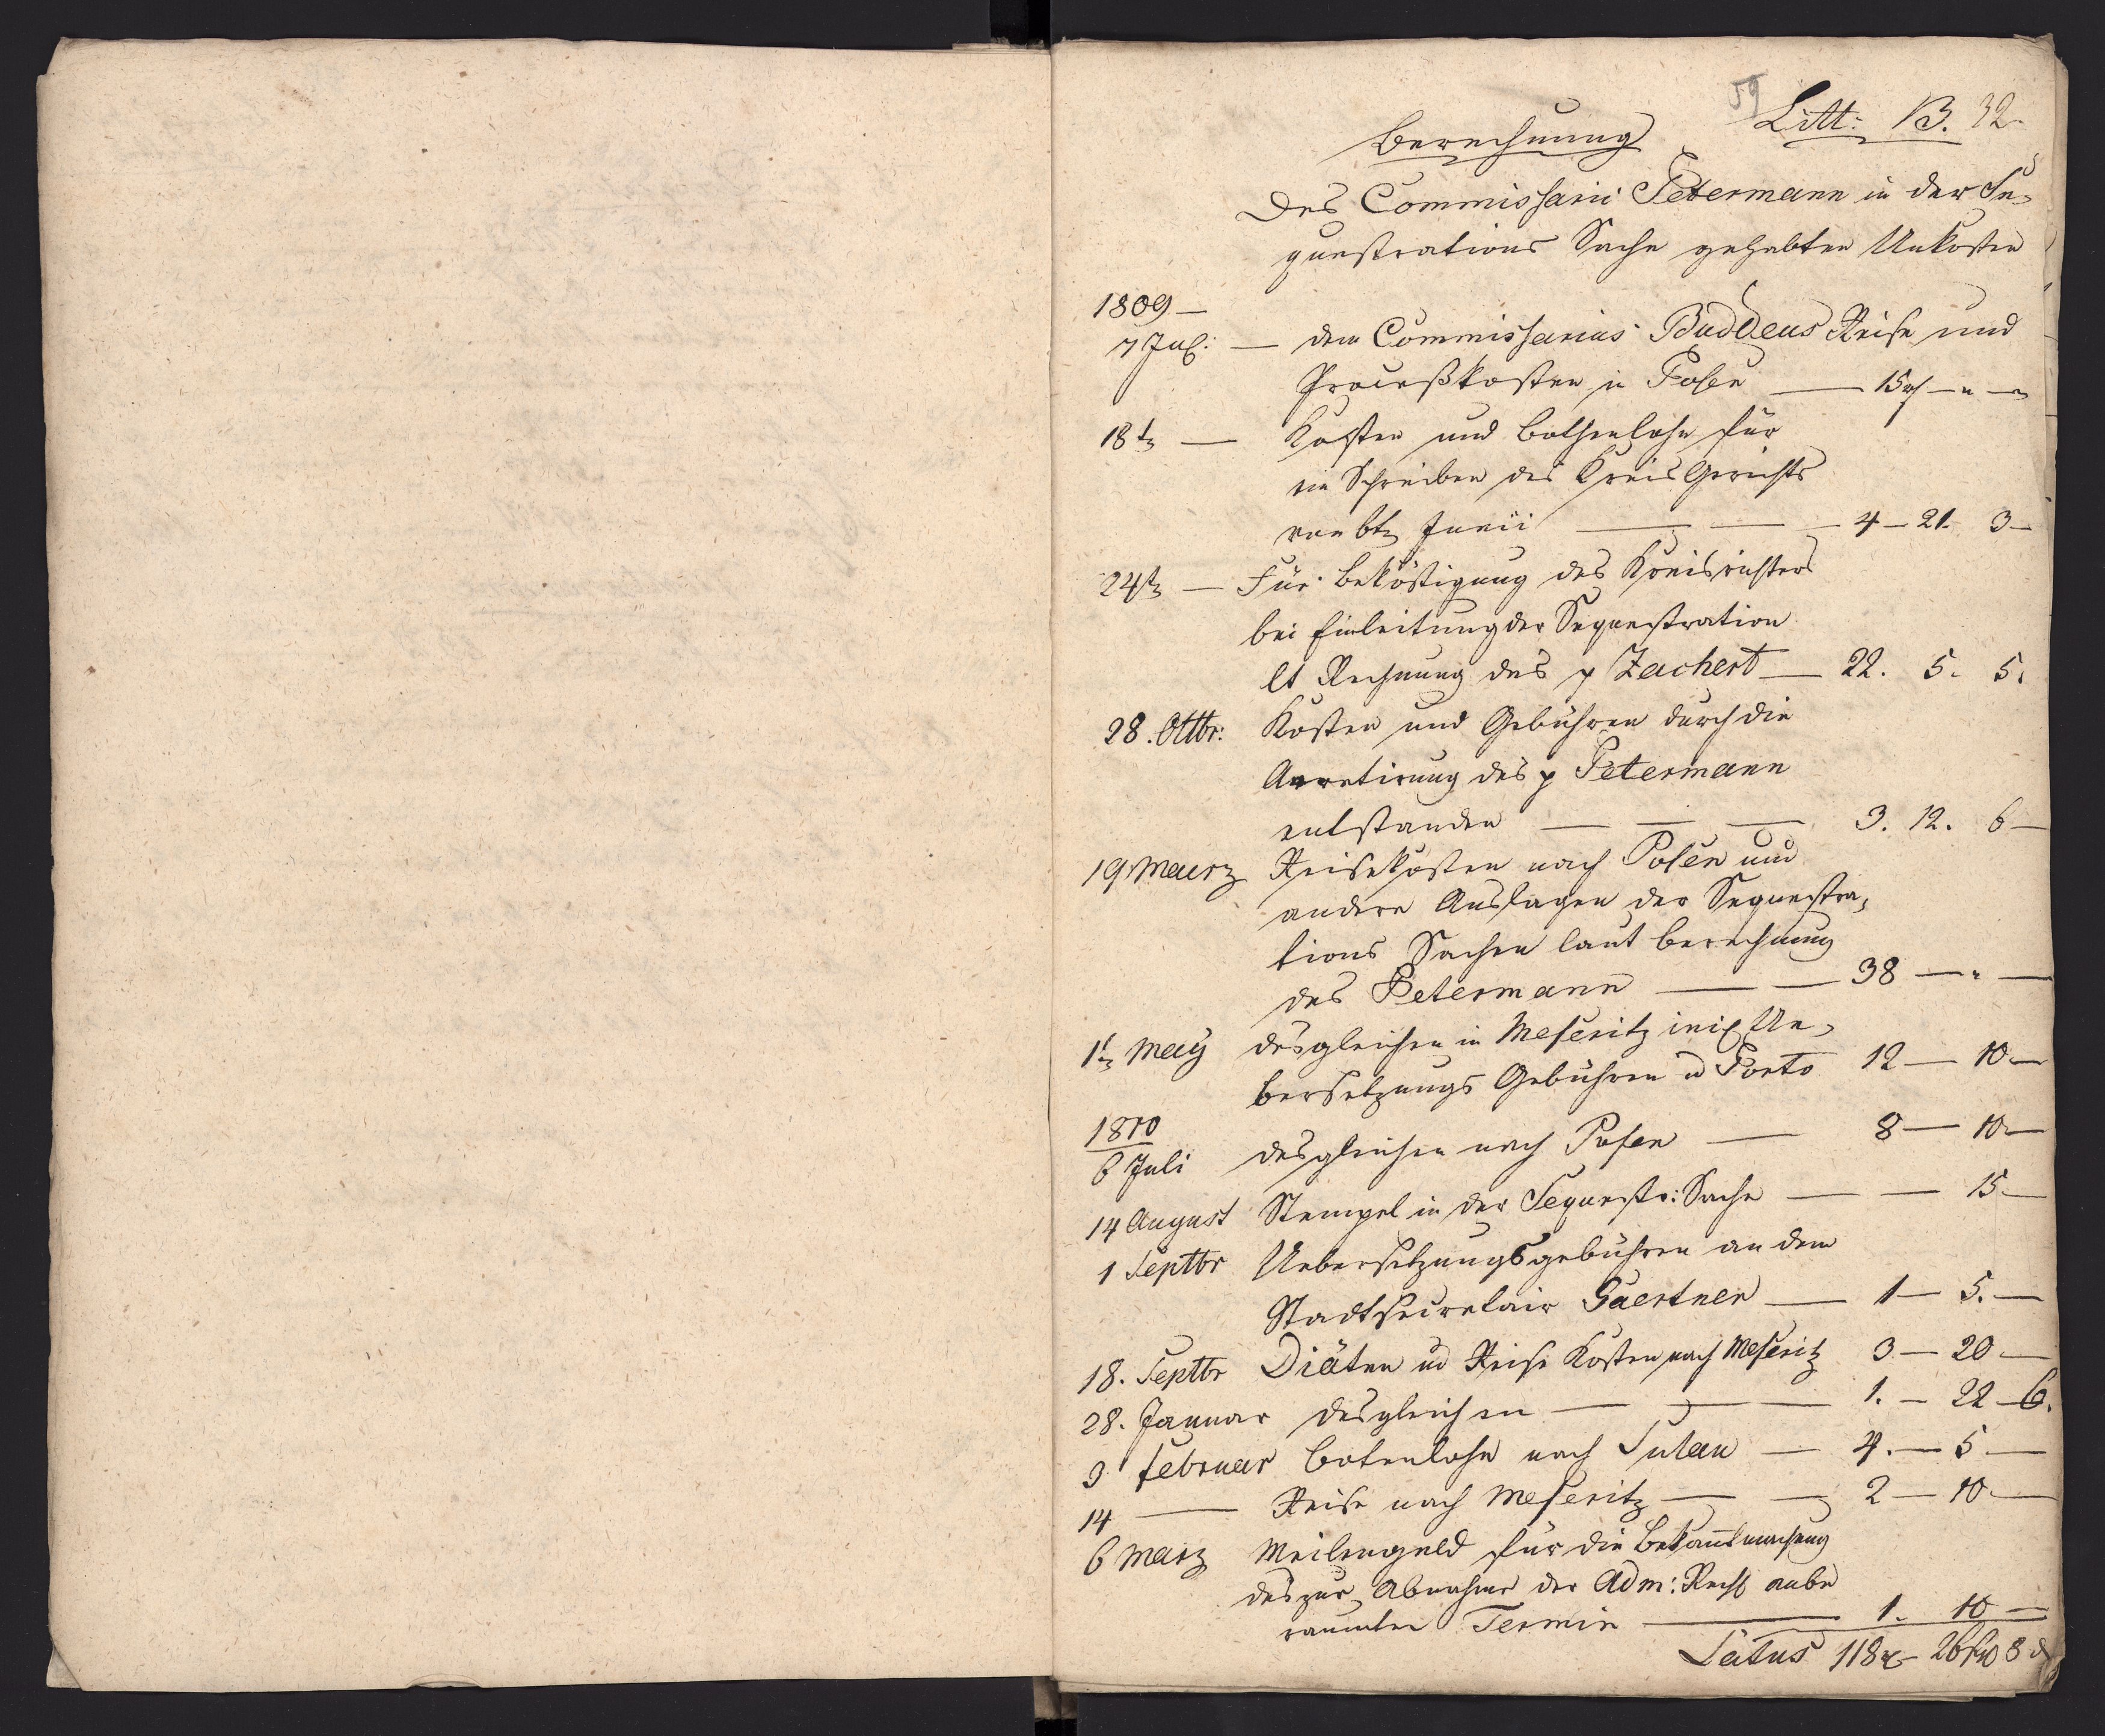 59
Litt: B. 32.
Berechnung
Des Commissarii Petermann in der Se-
questrations Sache gehabten Unkosten
1809 —
7 Jul: — dem Commissarius Buddeus Reise und
Proceßkosten in Posen — 15 rt — " — "
18t — Kosten und Bothenlohn für
ein Schreiben des Kreis Gerichts
von 6t Junii — — 4 — 21. 3 —
24t — Für Beköstigung des Kreisrichters
bei Einleitung der Sequestration
lt Rechnung des p Zachert — 22. 5. 5.
28. Octbr: Kosten und Gebühren durch die
Arretirung des p Petermann
entstanden — — — 3. 12. 6 —
19 Maerz Reisekosten nach Posen und
andere Auslagen der Sequestra-
tions Sachen laut Berechnung
des Petermann — — 38 — " —
1t May desgleichen in Meseritz incl Ue-
bersetzungs Gebühren u Porto 12 — 10 —
1810
6 Juli desgleichen nach Posen — 8 — 10 —
14 August Stempel in der Sequestr: Sache — — 15 —
1 Septbr Uebersetzungsgebühren an dem
Stadtsecretair Gaertner — 1 — 5. —
18. Septbr Diäten ud Reise Kosten nach Meseritz 3 — 20 —
28. Januar desgleichen — — — 1. — 22 — 6.
3 Februar Botenlohn nach — 4. — 5 —
14 — Reise nach Meseritz — — 2 — 10 —
6 Marz Meilengeld für die Bekanntmachung
des zur Abnahme der Adm: Rech anbe
raumten Termin — 1. 10 —
Latus 118 rt — 26 8 d